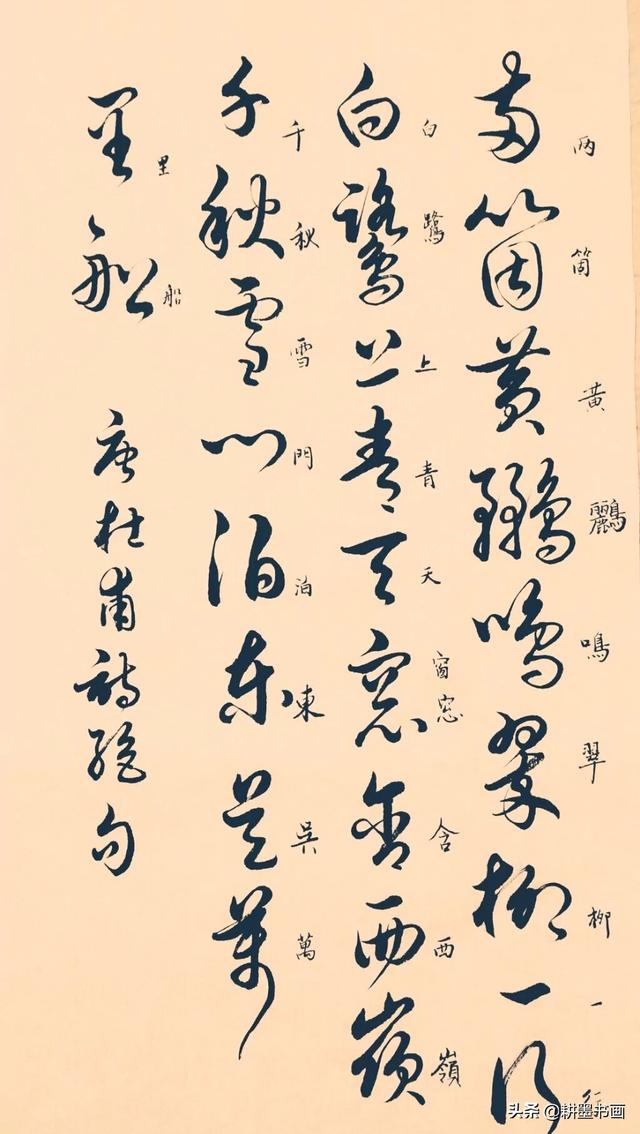 两箇黄鸝鳴翠柳一行
两箇黃鸝鳴翠柳一行
白鷺上青天窓含西嶺
白鷺上青天窗窓含西嶺
千秋雪門泊東吳萬
千秋雪門泊東吳萬
里船
里船
唐杜甫詩絕句
头条 @耕墨书画